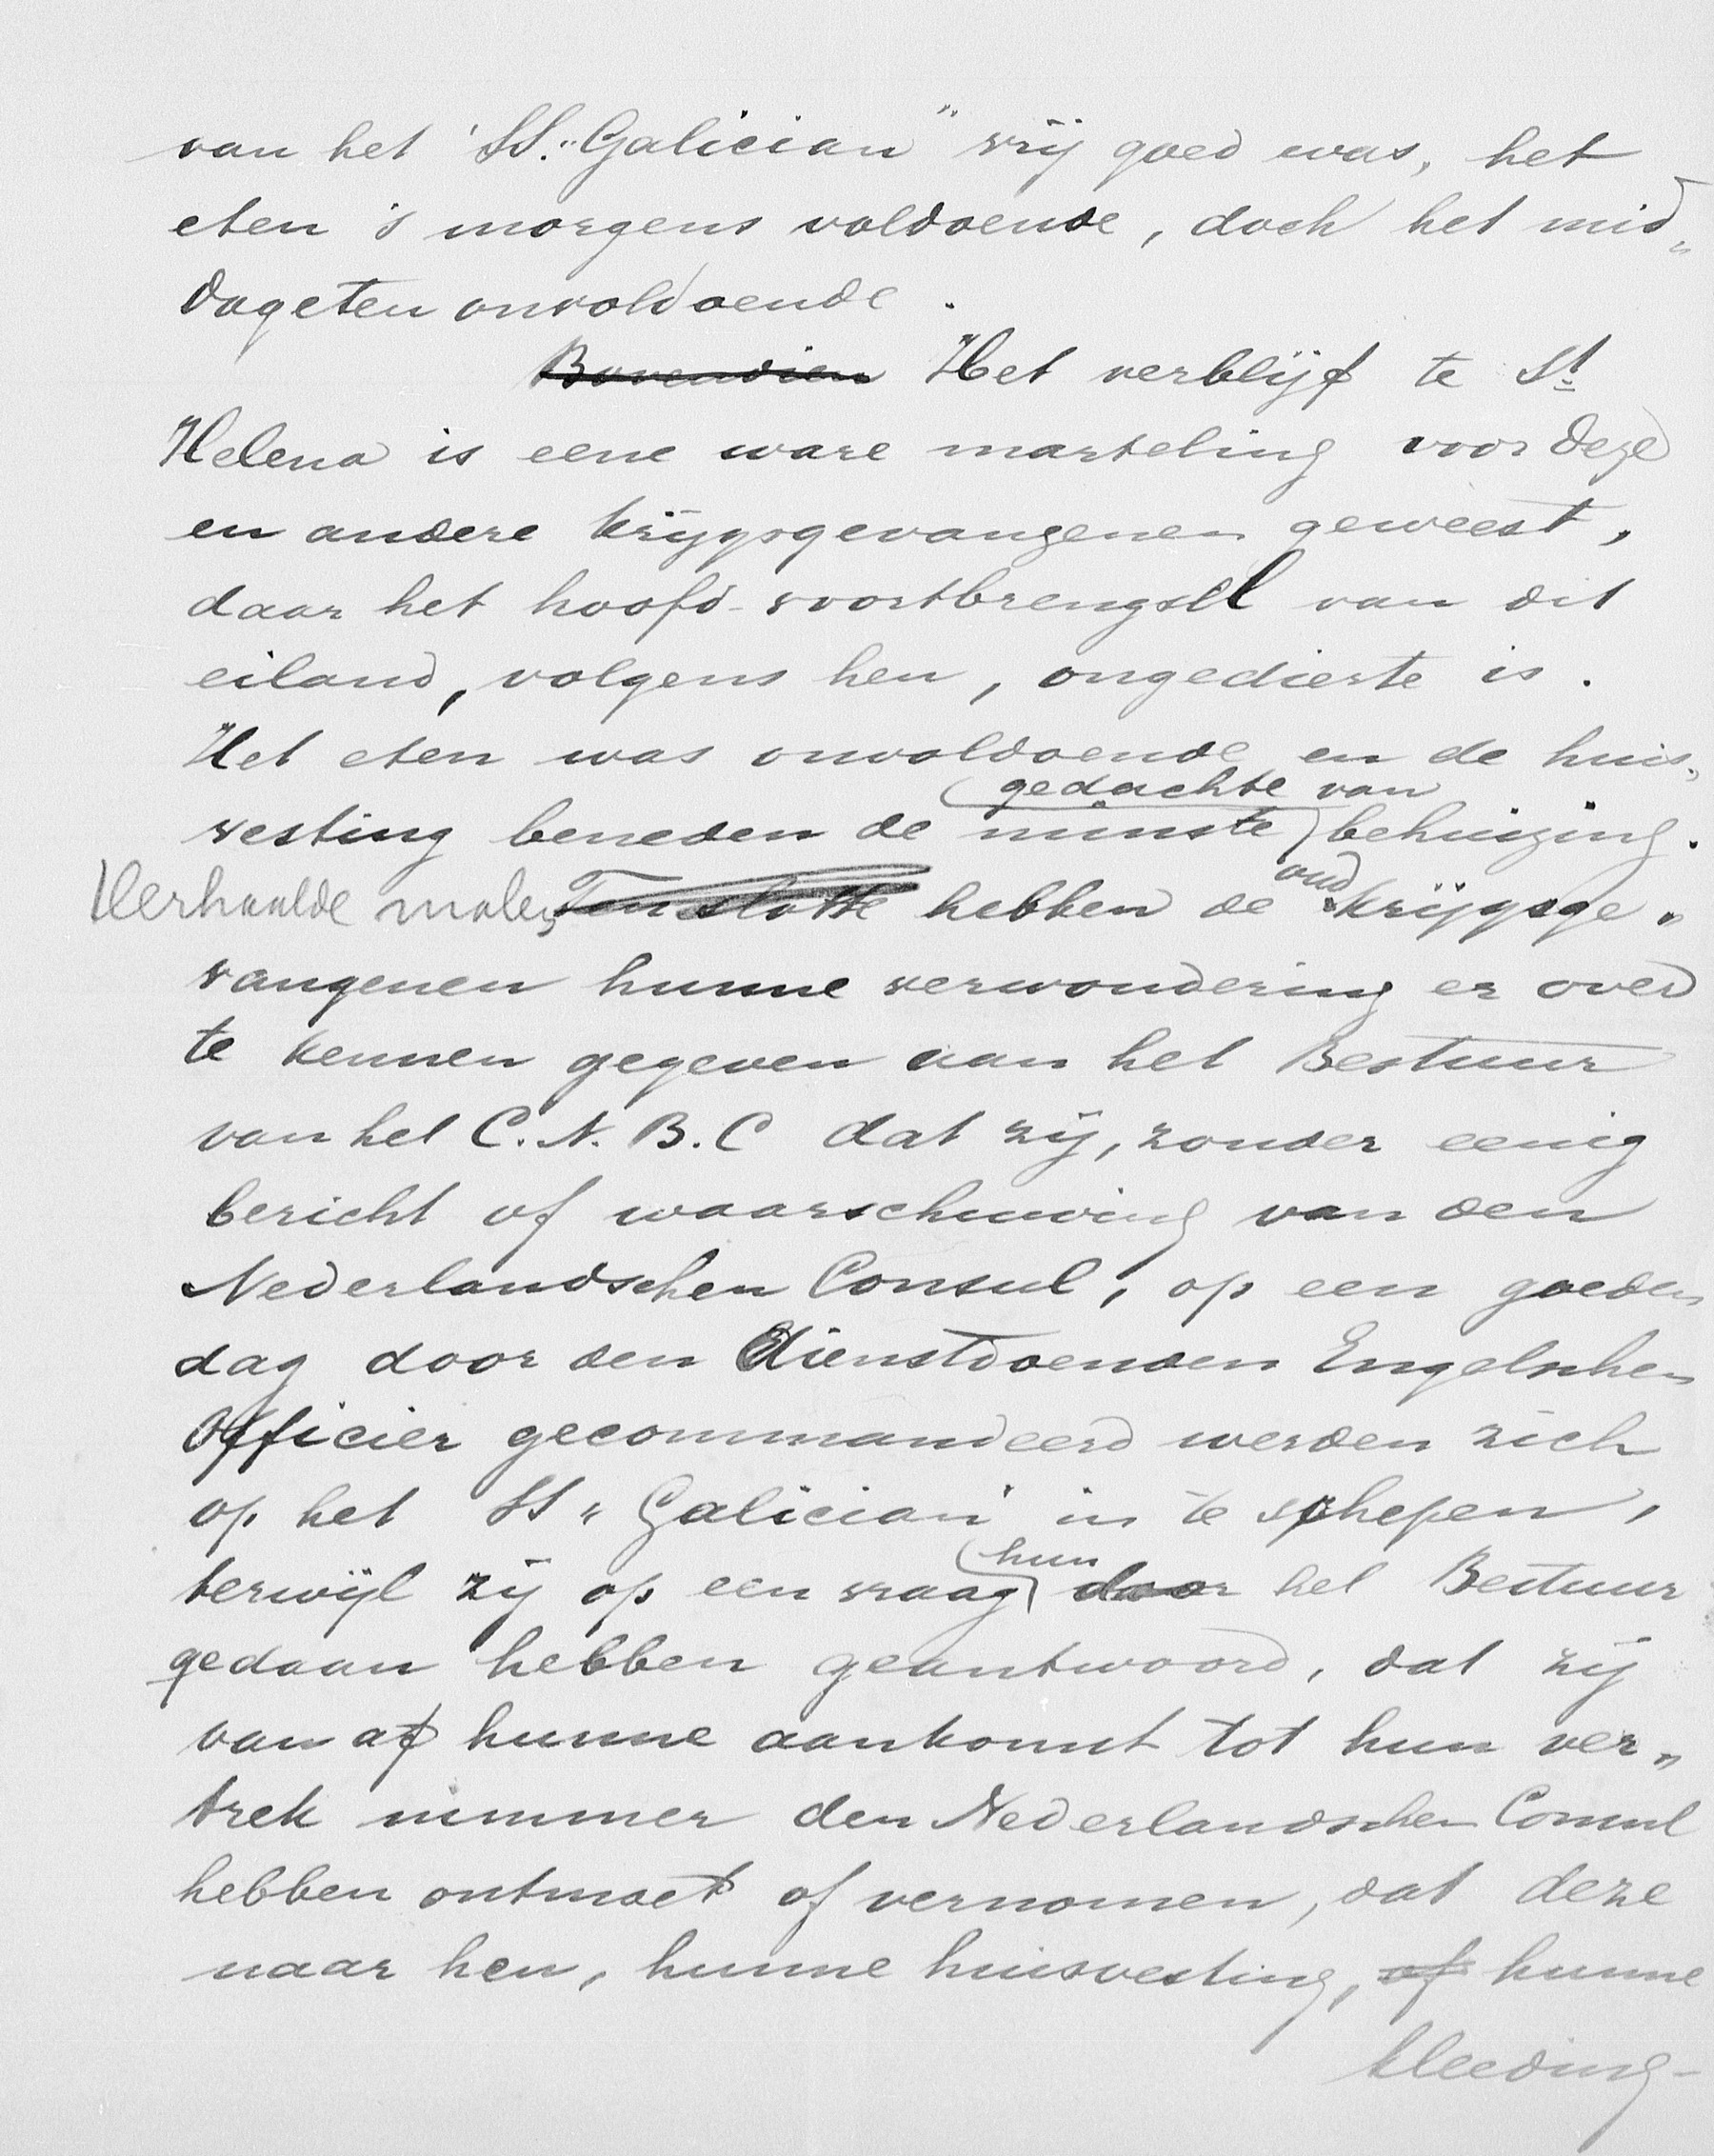 van het 'SS. "Galician" vrij goed was, het
eten 's morgens voldoende, doch het mid„
dageten onvoldoende.
Bovendien Het verblijf te St
Helena is eene ware marteling voor deze
en andere krijgsgevangenen geweest,
daar het hoofd-voortbrengsel van dit
eiland, volgens hen, ongedierte is.
Het eten was onvoldoende en de huis„
gedachte van
vesting beneden de minste behuizing.
oud
Herhaalde malen Ten slotte hebben de krijgsge„
vangenen hunne verwondering er over
te kennen gegeven aan het Bestuur
van het C.N.B.C dat zij, zonder eenig
bericht of waarschuwing van den
Nederlandschen Consul, op een goeden
dag door den dienstdoenden Engelschen
Officier gecommandeerd werden zich
op het SS "Galician" in te schepen,
hun
terwijl zij op een vraag door het Bestuur
gedaan hebben geantwoord, dat zij
van af hunne aankomst tot hun ver„
trek nimmer den Nederlandschen Consul
hebben ontmoet of vernomen, dat deze
naar hen, hunne huisvesting, of hunne
kleeding-